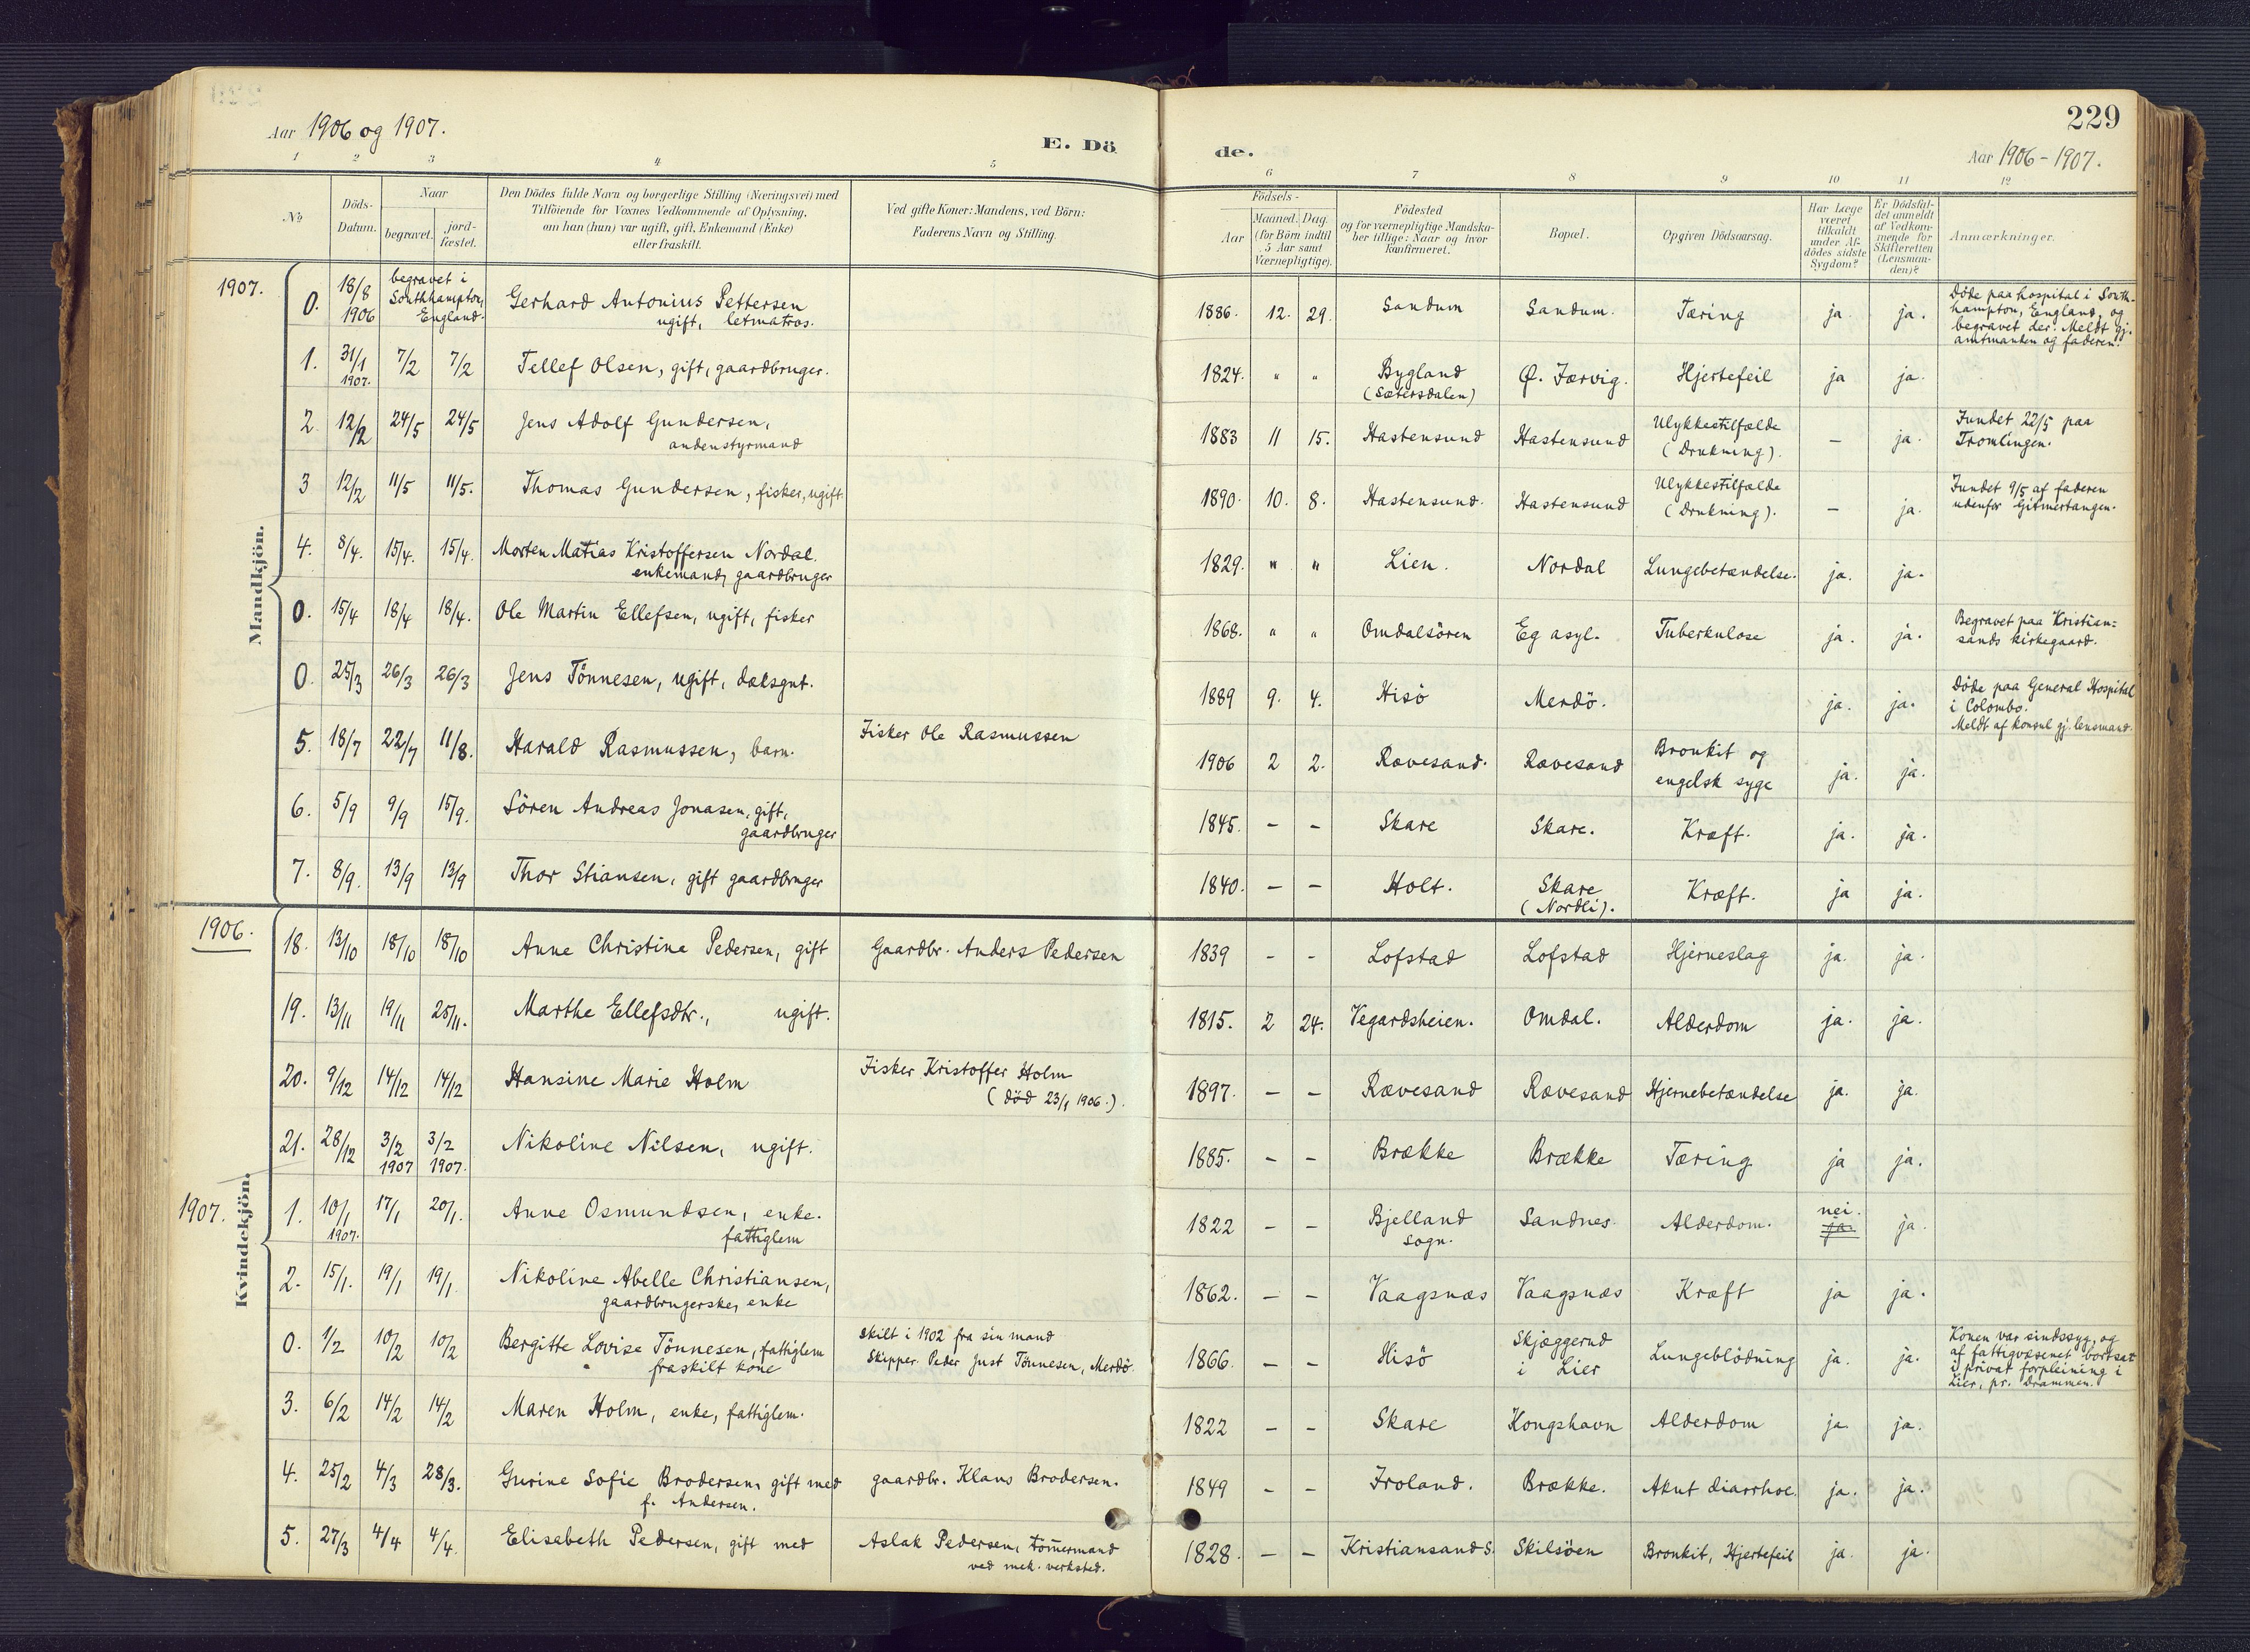 229
Aar 1906 og 1907.
E. Dö
de.
Aar 1906-1907.
1 2 3 4 5 6 7 8 9 10 11 12
No
Döds-
Datum.
Naar
begravet.
jord-
fæstet.
Den Dödes fulde Navn og borgerlige Stilling (Næringsvei) med
Tilföiende for Voxnes Vedkommende af Oplysning,
om han (hun) var ugift, gift, Enkemand (Enke)
eller fraskilt.
Ved gifte Koner: Mandens, ved Börn:
Faderens Navn og Stilling.
Födsels-
Aar
Maaned. Dag.
(for Börn indtil
5 Aar samt
Værnepligtige).
Födested
og for værnepligtige Mandska-
ber tillige: Naar og hvor
konfirmeret.
Bopæl.
Opgiven Dödsaarsag.
Har Læge
været
tilkaldt
under Af-
dödes sidste
Sygdom?
Er Dödsfal-
det anmeldt
af Vedkom-
mende for
Skifteretten
(Lensman-
den)?
Anmærkninger.
Mandkjön.
1907.
0. 18/8 1906 begravet i Southhampton, England. Gerhard Antonius Pettersen ugift, letmatros. 1886. 12. 29. Sandum Sandum. Tæring ja ja. Döde paa hospital i South-
hampton, England, og
begravet der. Meldt gj.
amtmanden og faderen.
1. 31/1 1907. 7/2 7/2 Tellef Olsen, gift, gaardbruger. 1824. " " Bygland (Sætersdalen) Ø. Færvig. Hjertefeil ja ja.
2. 12/2 24/5 24/5 Jens Adolf Gundersen, andenstyrmand 1883 11 15. Hastensund Hastensund Ulykkestilfælde (Drukning). – ja. Fundet 22/5 paa
Tromlingen.
3 12/2 11/5 11/5. Thomas Gundersen, fisker, ugift. 1890. 10. 8. Hastensund. Hastensund Ulykkestilfælde (Drukning). – ja. Fundet 9/5 af faderen
udenfor Gitmertangen.
4. 8/4. 15/4. 15/4. Morten Matias Kristoffersen Nordal. enkemand, gaardbruger 1829. " " Lien. Nordal Lungebetændelse. ja. ja.
0. 15/4 18/4 18/4. Ole Martin Ellefsen, ugift, fisker 1868. " " Omdalsören Eg asyl. Tuberkulose ja. ja. Begravet paa Kristian=
sands kirkegaard.
0. 25/3 26/3 26/3 Jens Tönnesen, ugift, dæksgut. 1889 9. 4. Hisö Merdö. ja. ja. Döde paa General Hospital
i Colombo.
Meldt af konsul gj. lensmand.
5. 18/7 22/7 11/8. Harald Rasmussen, barn. Fisker Ole Rasmussen 1906 2 2. Rævesand. Rævesand Bronkit og engelsk syge ja. ja.
6. 5/9 9/9 15/9. Sören Andreas Jonasen, gift, gaardbruger 1845. – – Skare Skare. Kræft. ja. ja.
7. 8/9. 13/9 13/9 Thor Stiansen, gift gaardbruger 1840. – – Holt. Skare (Nordli). Kræft. ja ja.
Kvindekjön.
1906.
18. 13/10 18/10 18/10 Anne Christine Pedersen, gift Gaardbr. Anders Pedersen 1839 - - Lofstad Lofstad Hjerneslag ja. ja.
19. 13/11 19/11 25/11. Marthe Ellefsdtr., ugift. 1815. 2 24. Vegardsheien. Omdal. Alderdom ja. ja.
20. 9/12 14/12 14/12 Hansine Marie Holm Fisker Kristoffer Holm (död 23/1 1906.). 1897. – – Rævesand Rævesand Hjernebetændelse ja. ja.
21. 28/12 3/2 1907 3/2 1907. Nikoline Nilsen, ugift. 1885. – – Brække Brække Tæring ja ja.
1907.
1. 10/1 1907. 17/1 20/1. Anne Osmundsen, enke. fattiglem 1822 – – Bjelland sogn. Sandnes. Alderdom. nei. ja. ja.
2. 15/1. 19/1 19/1 Nikoline Abelle Christiansen, gaardbrugerske, enke 1862. – – Vaagsnæs Vaagsnæs Kræft ja ja.
0. 1/2 10/2 10/2 Bergitte Lovise Tönnesen, fattiglem fraskilt kone skilt i 1902 fra sin mand Skipper Peder Just Tönnesen, Merdö. 1866. – – Hisö Skjæggerud i Lier Lungeblödning ja. ja. Konen var sindssyg, og
af fattigvæsenet bortsat
i privat forpleining i
Lier, pr. Drammen.
3. 6/2 14/2 14/2 Maren Holm, enke, fattiglem. 1822 – – Skare Kongshavn Alderdom ja. ja.
4. 25/2 4/3 28/3. Gurine Sofie Brodersen, gift med f. Andersen. gaardbr. Klaus Brodersen. 1849 – – Froland. Brække. Akut diarrhoe. ja. ja.
5. 27/3 4/4 4/4. Elisabeth Pedersen, gift med Aslak Pedersen, tömmermand ved mek. verksted. 1828. – – Kristiansand S. Skilsöen Bronkit, Hjertefeil ja. ja.